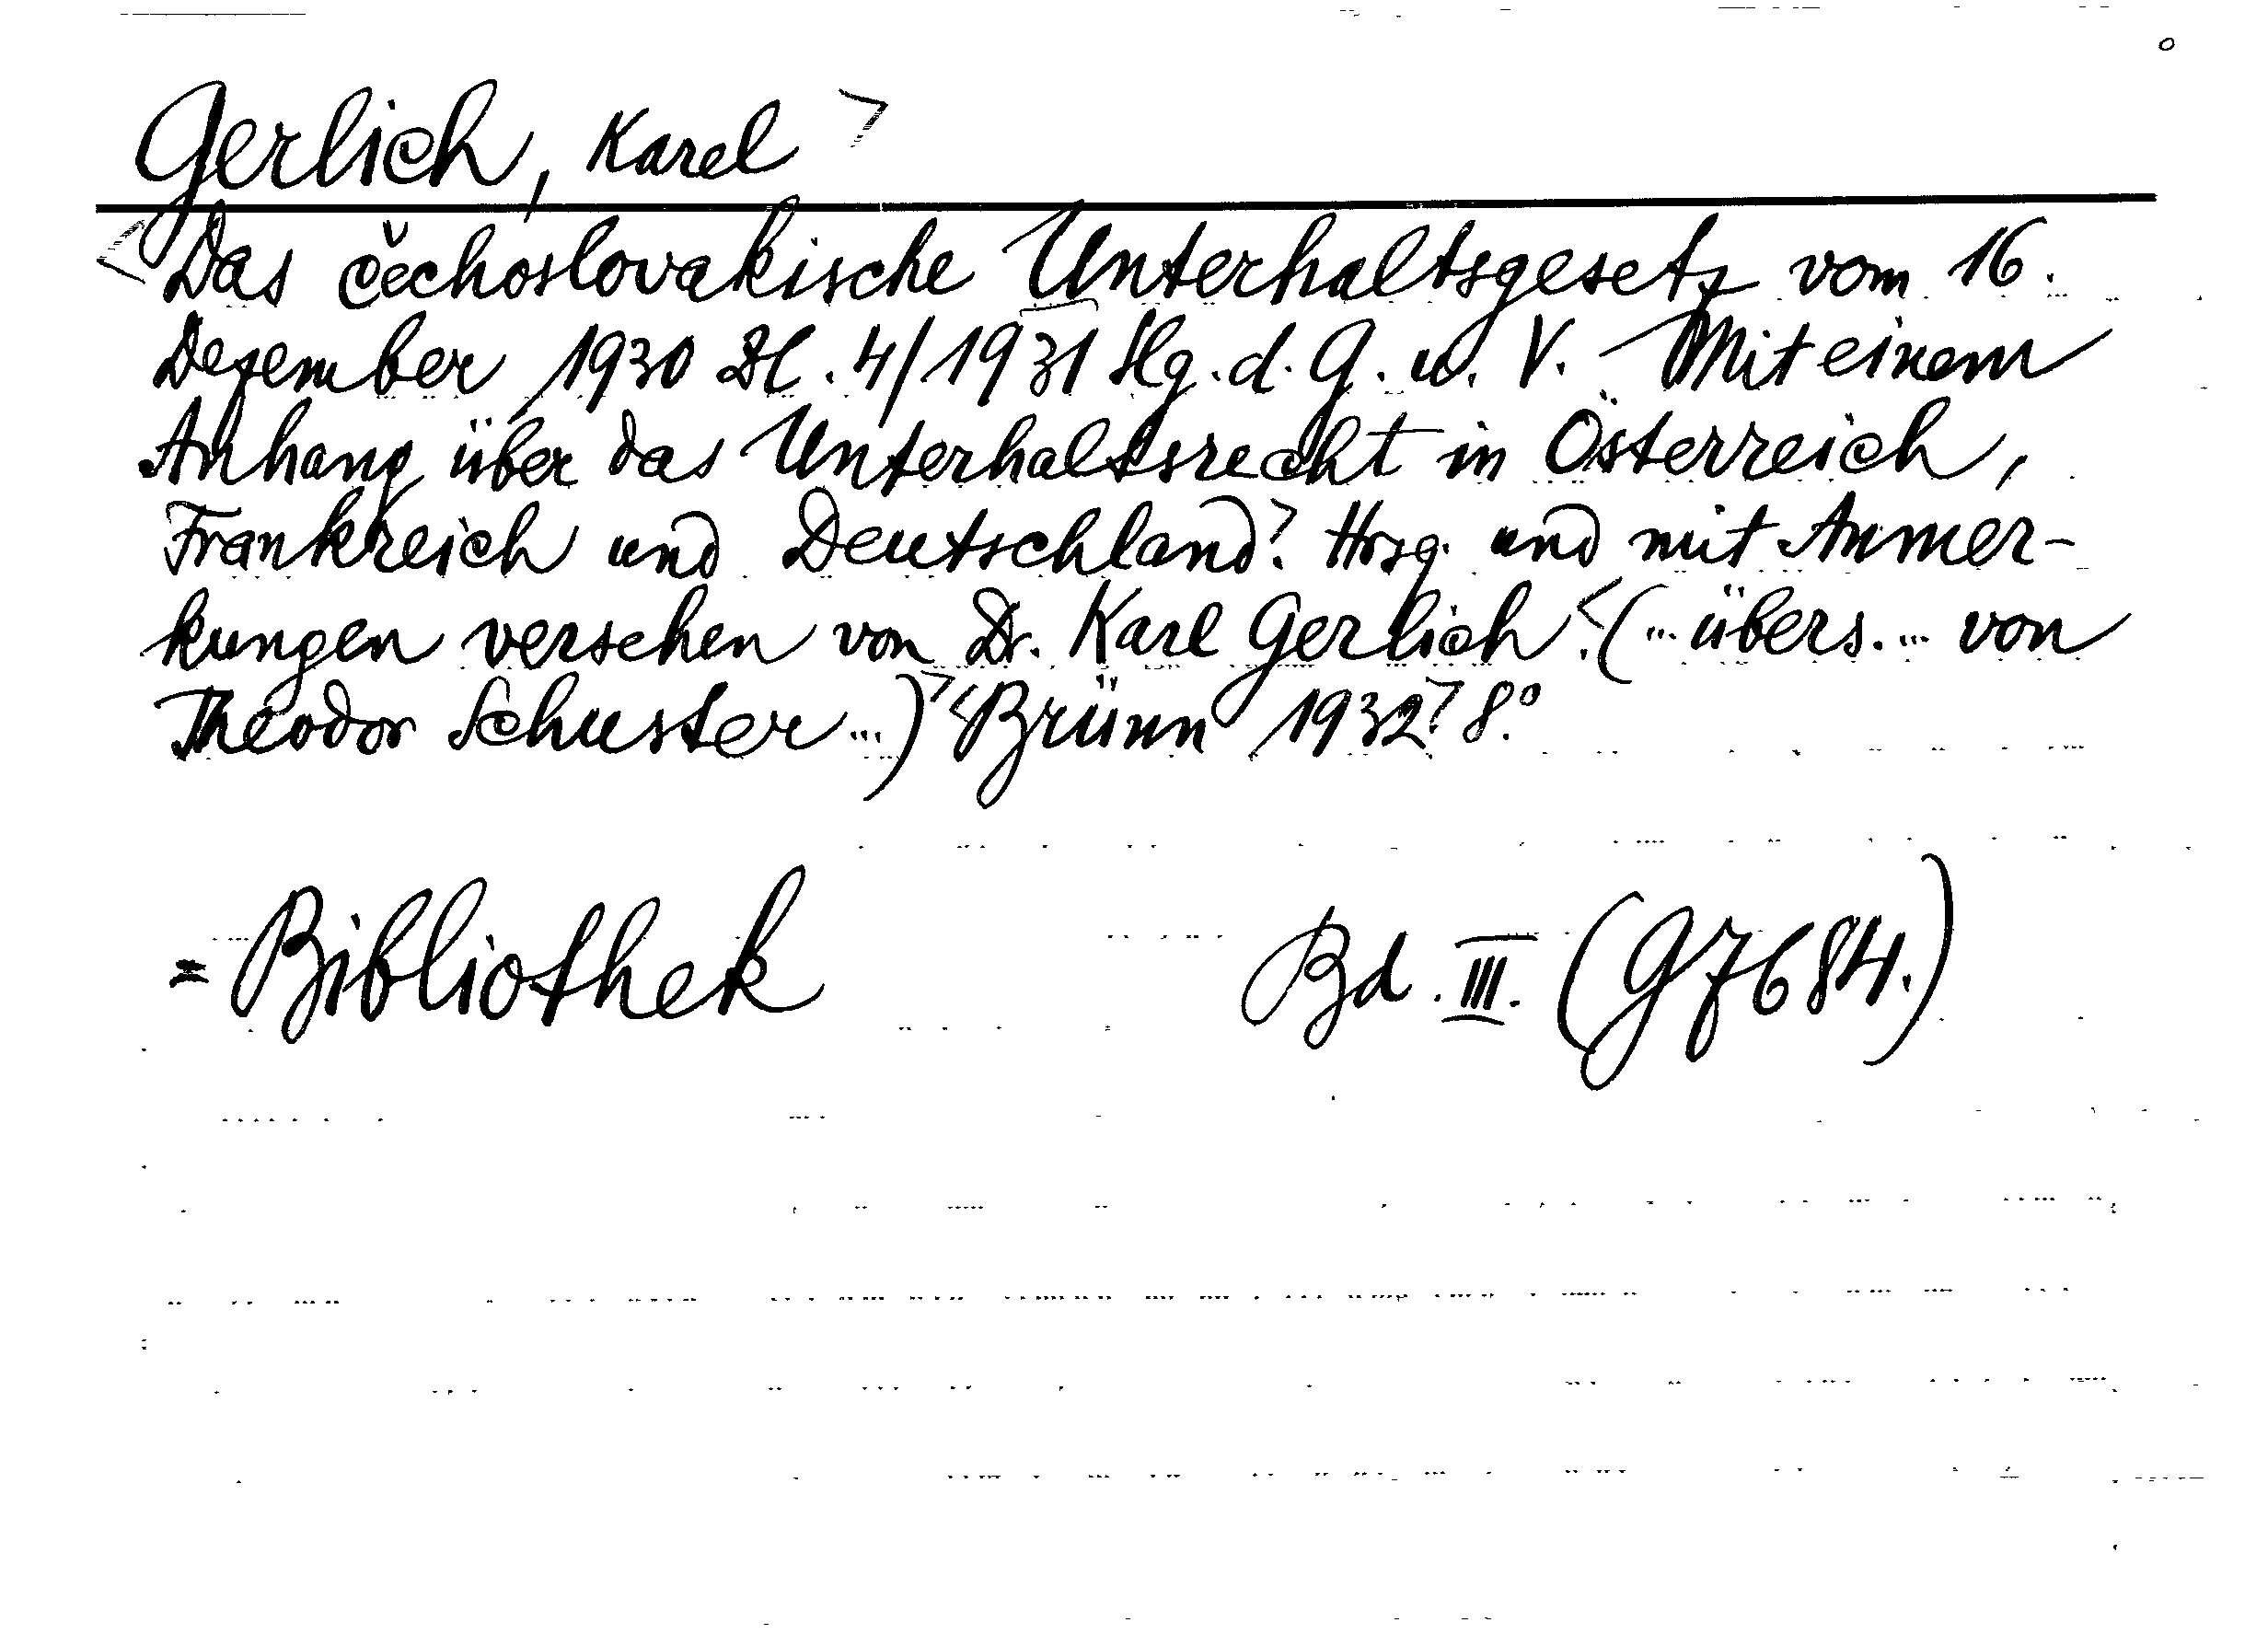 Gerlich, Karel >
<Das čechoslovakische Unterhaltsgesetz vom 16.
Dezember 1930 Zl. 4/1931 Slg. d. G. u. V. - Mit einem
Anhang über das Unterhaltsrecht in Österreich,
Frankreich und Deutschland>. Hrsg. und mit Anmer-
kungen versehen von Dr. Karl Gerlich. <(... übers. ... von
Theodor Schuster ...)> <Brünn 1932> 8.°
= Bibliothek Bd. III. (G7684.)